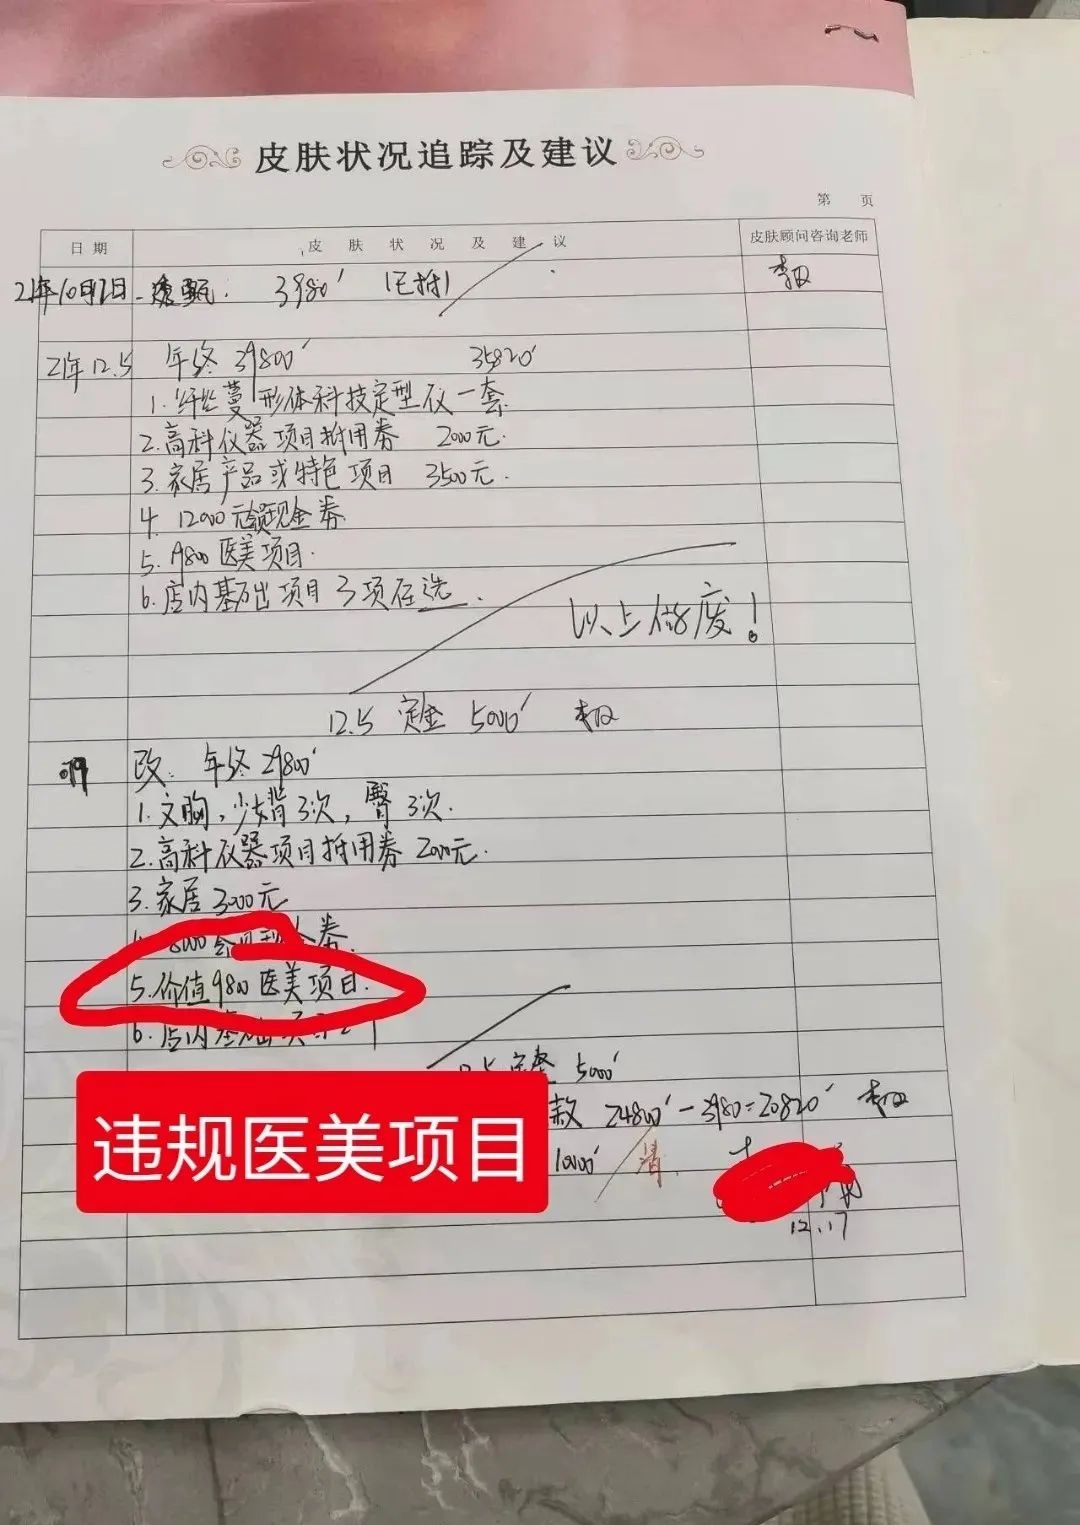 皮肤状况追踪及建议
第 页
日期 皮肤状况及建议 皮肤顾问咨询老师
21年10月 3980
21年12.5 年终39800 35820
1.纤丝蔓形体科技定型仪一套
2.高科仪器项目抵用券 2000元.
3.家居产品或特色项目 3500元.
4. 12000元 现金券
5. 9800医美项目.
6.店内基础项目3项任选.
以上作废!
12.5 定金 5000
改: 年终29800
1.文胸,少女背3次,臀3次.
2.高科仪器项目抵用券 2000元.
3.家居3000元
券.
5.价值9800医美项目.
6.店内
定金 5000
违规医美项目
款 24800-3980=20820
10000
12.17